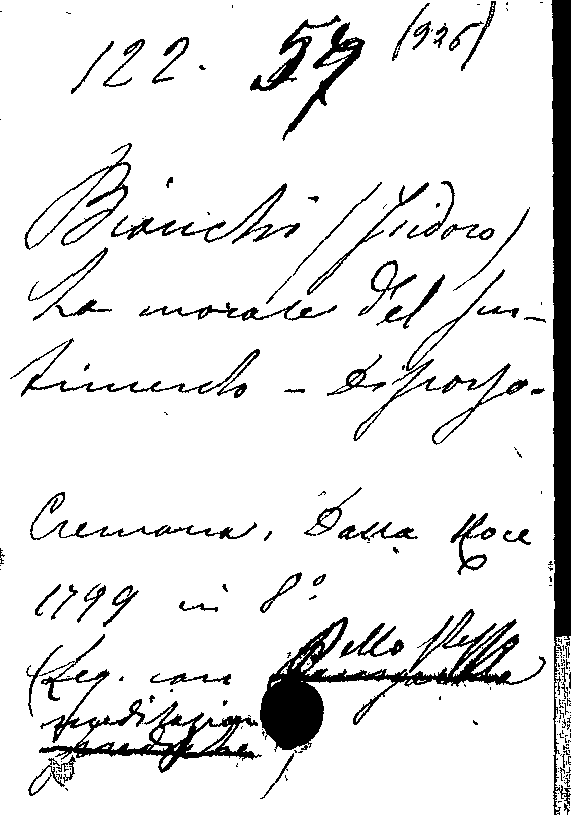 122. 57 (926)
Bianchi (Isidoro)
La morale del sen-
timento - Discorso.
Cremona, Dalla Noce
1799 in 8º
(Leg. con Dello stesso
meditazioni
)